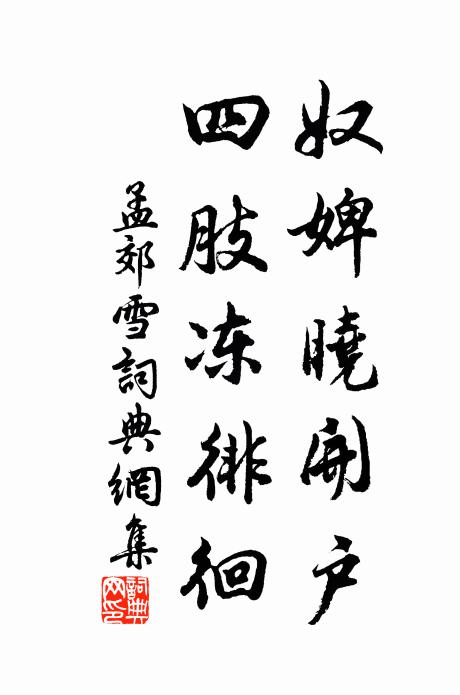 奴婢曉開户
四肢冻徘徊
孟郊雪詞典網集
詞典网印